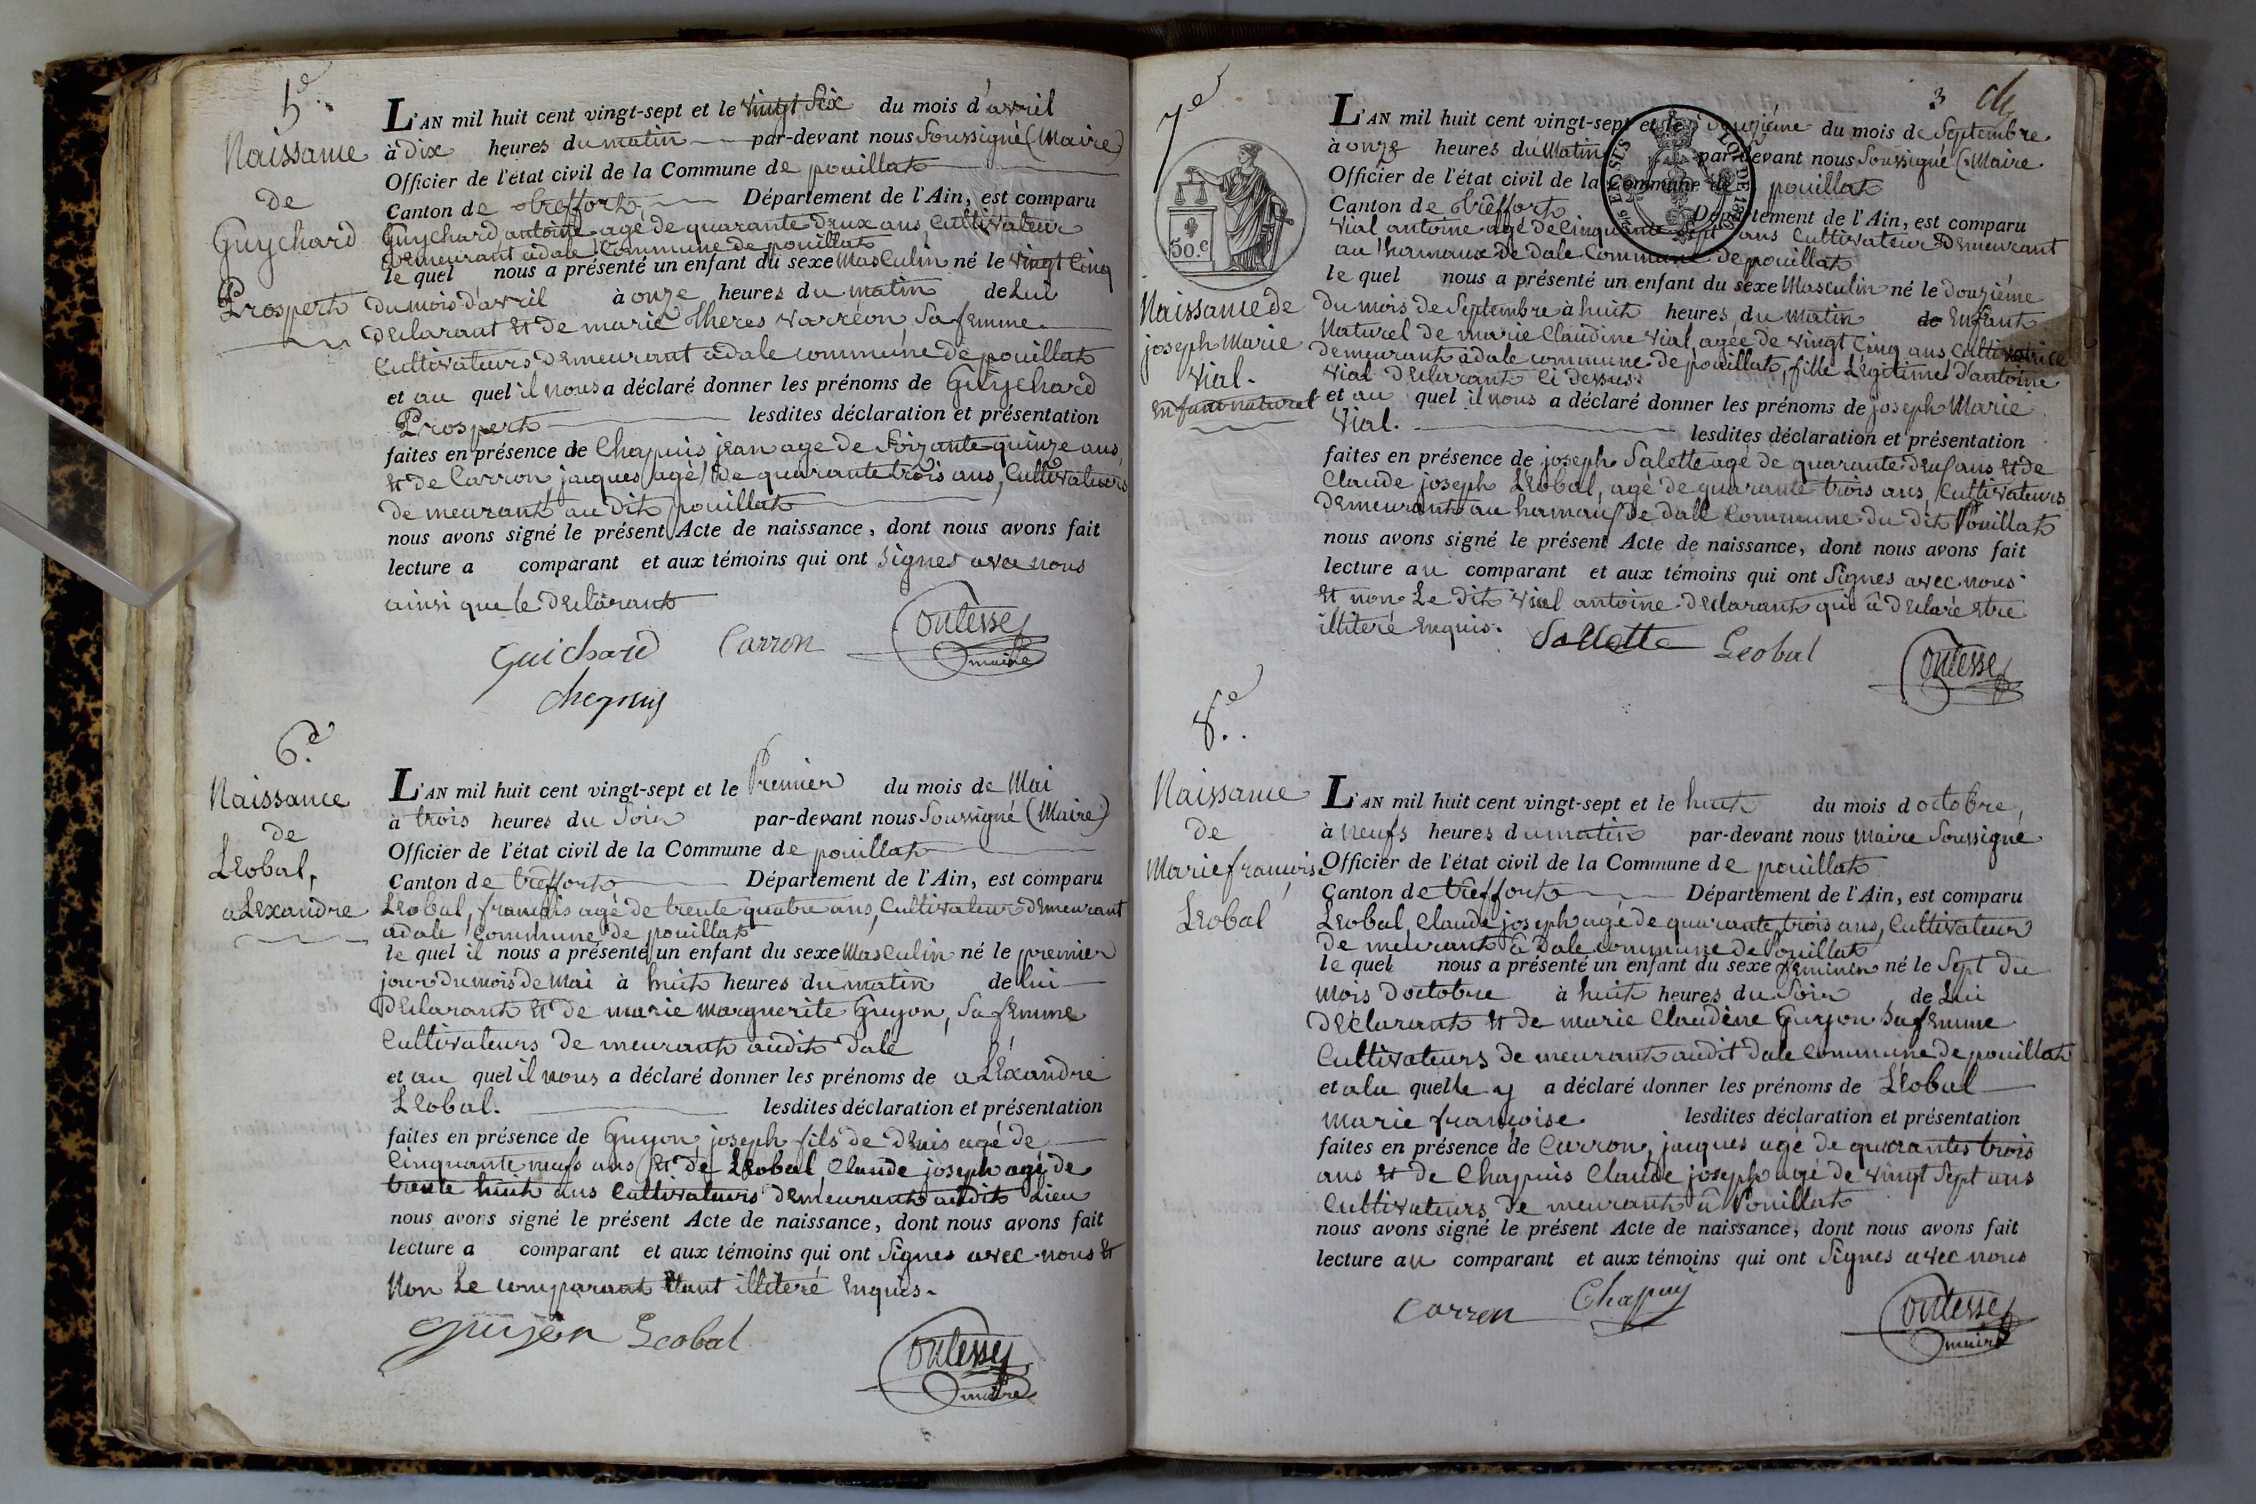 5e
Naissance
de
Guychard
Prospert
L'AN mil huit cent vingt-sept et le vingt Six du mois d'avril
à dix heures du matin par-devant nous Soussigné (Maire)
Officier de l'état civil de la Commune de pouillat
Canton de treffort Département de l'Ain, est comparu
Guychard antoine agé de quarante deux ans Cultivateur
demeurant a dale Commune de pouillat
le quel nous a présenté un enfant du sexe Masculin né le vingt Cinq
du mois d'avril à onze heures du matin de Lui
declarant et de marie Theres varréon, Sa femme
Cultivateurs demeurant a dale commune de pouillat
et au quel il nous a déclaré donner les prénoms de Guychard
Prospert lesdites déclaration et présentation
faites en présence de Chapuis jean age de Soizante quinze ans,
et de Carron jacques agé de quarante trois ans, Cultivateurs
demeurant au dit pouillat
nous avons signé le présent Acte de naissance, dont nous avons fait
lecture a comparant et aux témoins qui ont signes avec nous
ainsi que le declarant
Guichard Carron Coutessy
maire
chapuy
6e
Naissance
de
Léobal,
alexandre
L'AN mil huit cent vingt-sept et le Premier du mois de Mai
à trois heures du Soir par-devant nous Soussigné (Maire)
Officier de l'état civil de la Commune de pouillat
Canton de treffort Département de l'Ain, est comparu
Léobal, françois agé de trente quatre ans, Cultivateur demeurant
a dale Commune de pouillat
le quel il nous a présenté un enfant du sexe Masculin né le premier
jour du mois de Mai à huit heures du matin de lui
declarant et de marie marguerite Guyon, Sa femme
Cultivateurs demeurant audit dale
et au quel il nous a déclaré donner les prénoms de aléxandre
Léobal. lesdites déclaration et présentation
faites en présence de Guyon joseph fils de denis agé de
Cinquante neufs ans et de Léobal Claude joseph agé de
trente huit ans Cultivateurs demeurant audit Lieu
nous avons signé le présent Acte de naissance, dont nous avons fait
lecture a comparant et aux témoins qui ont Signes avec nous et
Non Le comparant étant illiteré enquis.
Guyon Leobal Coutessy
maire
7e
50 c
Naissance de
joseph Marie
Vial.
enfant naturel
3
L'AN mil huit cent vingt-sept et le douziéme du mois de Septembre
à onze heures du Matin par-devant nous Soussigné (Maire
Officier de l'état civil de la Commune de pouillat
Canton de tréffort Département de l'Ain, est comparu
Vial antoine agé de Cinquante Sept ans Cultivateur demeurant
au hamaux de dale Commune de pouillat
le quel nous a présenté un enfant du sexe Masculin né le douziéme
du mois de Septembre à huit heures du Matin de Enfant
Naturel de marie Claudine Vial, agée de vingt Cinq ans Cultivatrice
demeurant a dale commune de pouillat, fille Légitime d'antoine
Vial declarant Ci dessus.
et au quel il nous a déclaré donner les prénoms de joseph Marie
Vial. lesdites déclaration et présentation
faites en présence de joseph Salette agé de quarante deux ans et de
Claude joseph Léobal, agé de quarante trois ans, Cultivateurs
demeurant au hamaux de dale Commune du dit Pouillat
nous avons signé le présent Acte de naissance, dont nous avons fait
lecture au comparant et aux témoins qui ont Signes avec nous
et non Le dit Vial antoine declarant qui à declaré etre
illiteré enquis. Sallette Leobal Coutessy
8e
Naissance
de
Marie françoise
Léobal
L'AN mil huit cent vingt-sept et le huit du mois d octobre,
à neufs heures du matin par-devant nous Maire Soussigné
Officier de l'état civil de la Commune de pouillat
Canton de treffort Département de l'Ain, est comparu
Léobal, Claude joseph agé de quarante trois ans, Cultivateur
demeurant à Dale commune de Pouillat
le quel nous a présenté un enfant du sexe feminin né le Sept du
mois d octobre à huit heures du Soir de Lui
declarant et de marie Claudène Guyon sa femme
Cultivateurs demeurant audit Dale Commune de pouillat
et a la quelle y a déclaré donner les prénoms de Léobal
Marie françoise lesdites déclaration et présentation
faites en présence de Carron, jacques agé de quarantes trois
ans et de Chapuis Claude joseph agé de vingt Sept ans
Cultivateurs demeurant à Pouillat
nous avons signé le présent Acte de naissance, dont nous avons fait
lecture au comparant et aux témoins qui ont Signes avec nous
Carron Chapuy Coutessy
maire